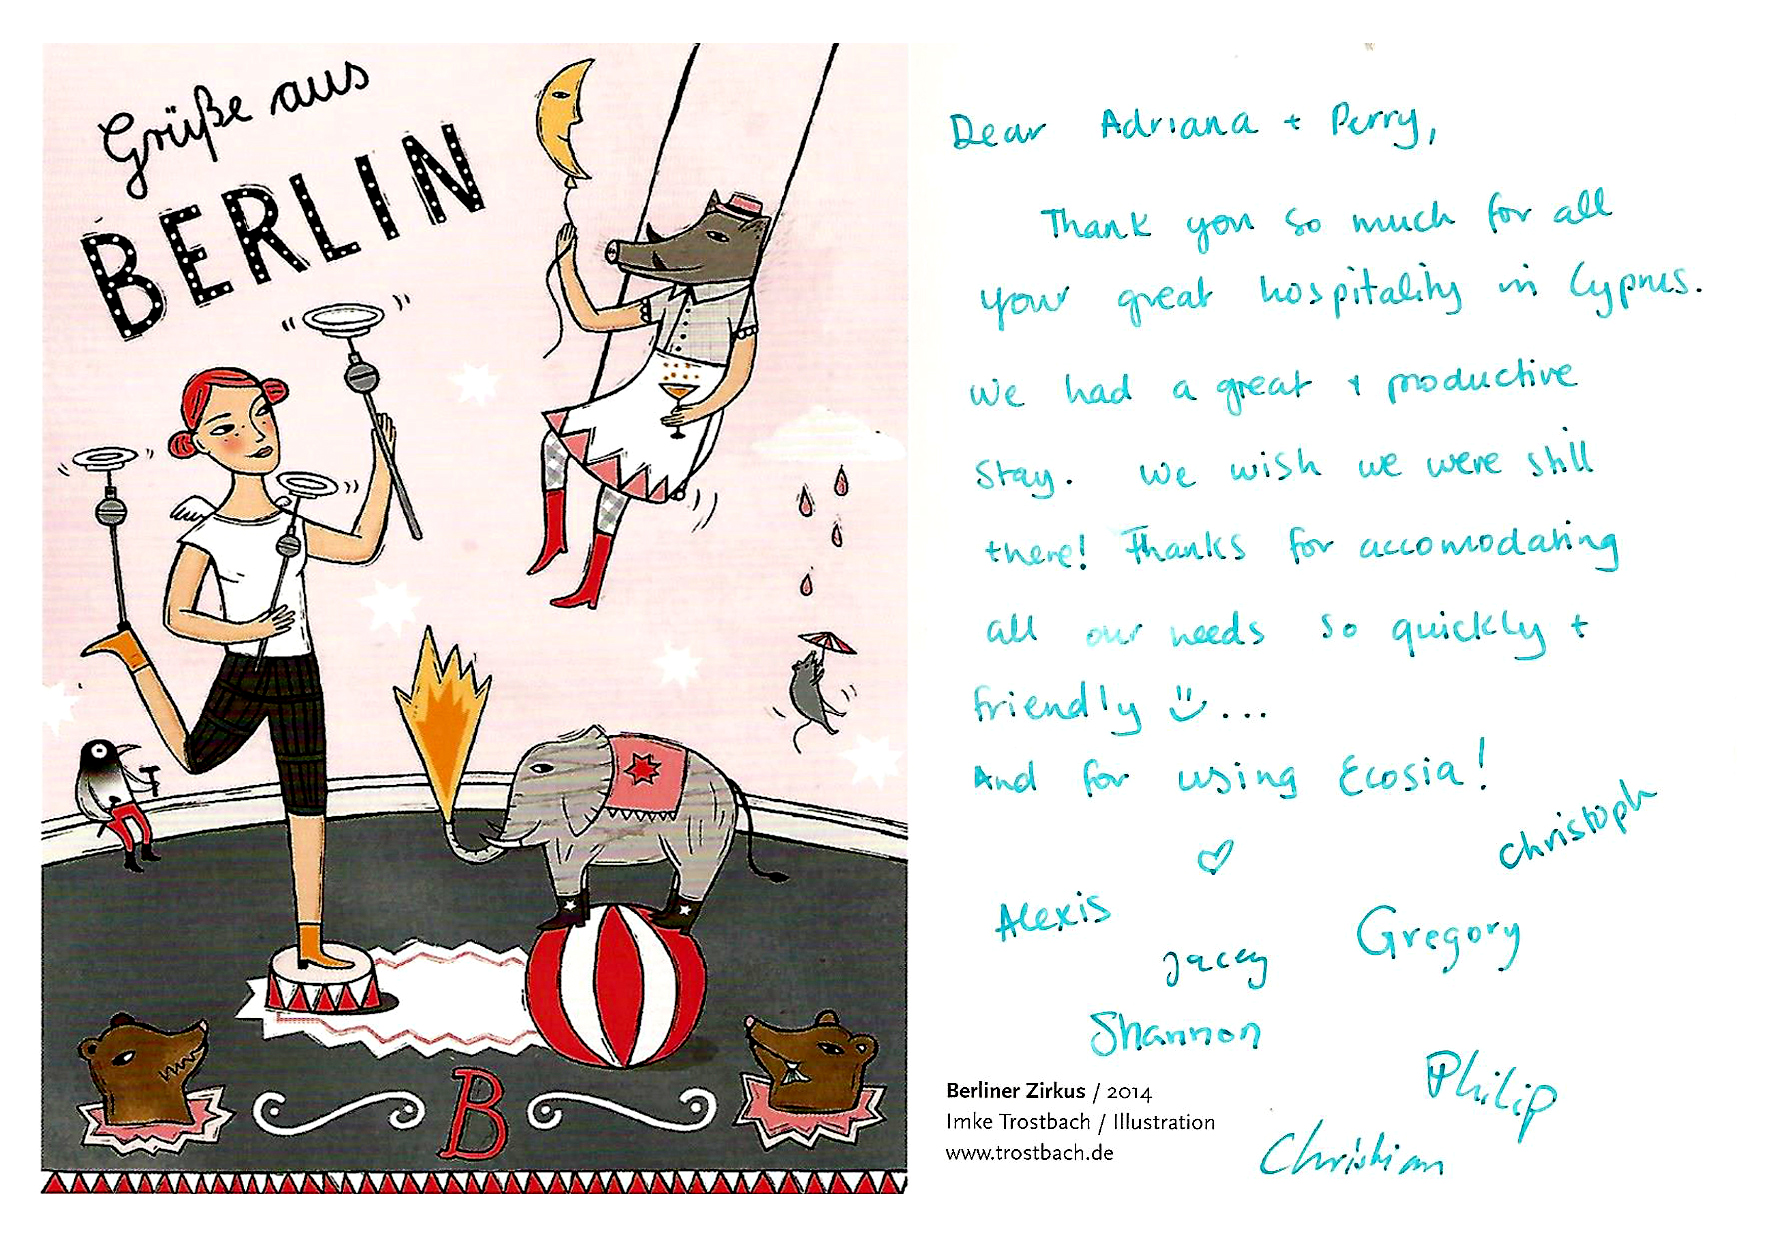 Grüße aus
BERLIN
B
Dear Adriana + Perry,
Thank you so much for all
your great hospitality in Cyprus.
We had a great + productive
stay. We wish we were still
there! Thanks for accomodating
all our needs so quickly +
friendly ...
And for using Ecosia!
Christoph
Alexis
Gregory
Jacey
Shannon
Philip
Christian
Berliner Zirkus / 2014
Imke Trostbach / Illustration
www.trostbach.de